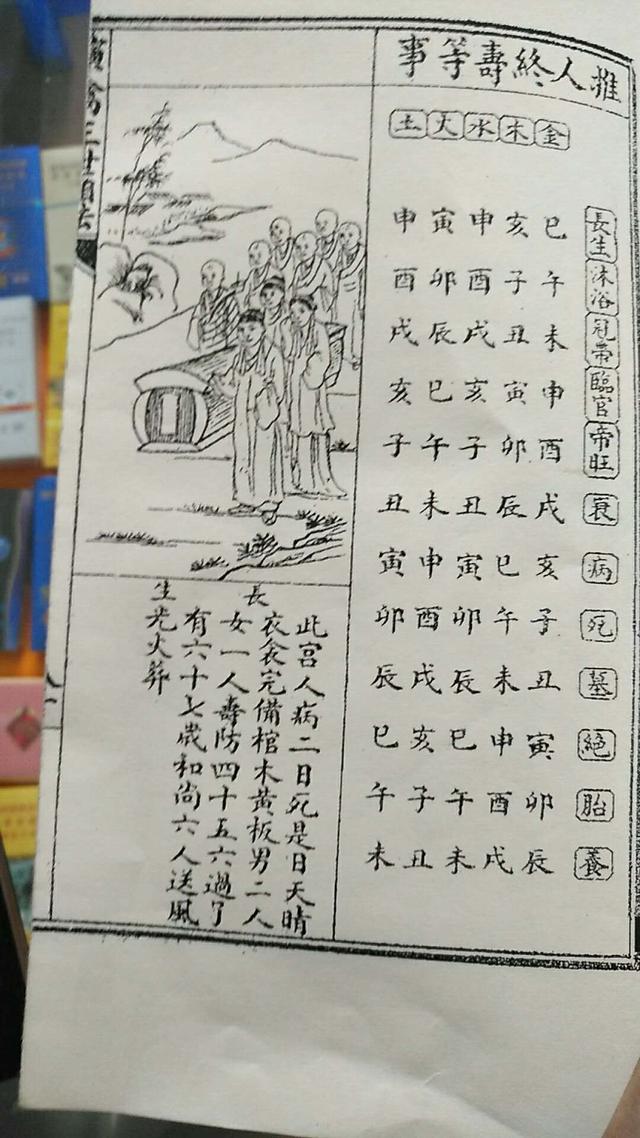 推人終壽等事
長生 沐浴 冠帶 臨官 帝旺 衰 病 死 墓 絕 胎 養
金 巳 午 未 申 酉 戌 亥 子 丑 寅 卯 辰
木 亥 子 丑 寅 卯 辰 巳 午 未 申 酉 戌
水 申 酉 戌 亥 子 丑 寅 卯 辰 巳 午 未
火 寅 卯 辰 巳 午 未 申 酉 戌 亥 子 丑
土 申 酉 戌 亥 子 丑 寅 卯 辰 巳 午 未
長生
此宮人病二日死是日天晴
衣衾完備棺木黃板男二人
女一人壽防四十五六過了
有六十七歲和尚六人送風
光火葬
禽三世相法